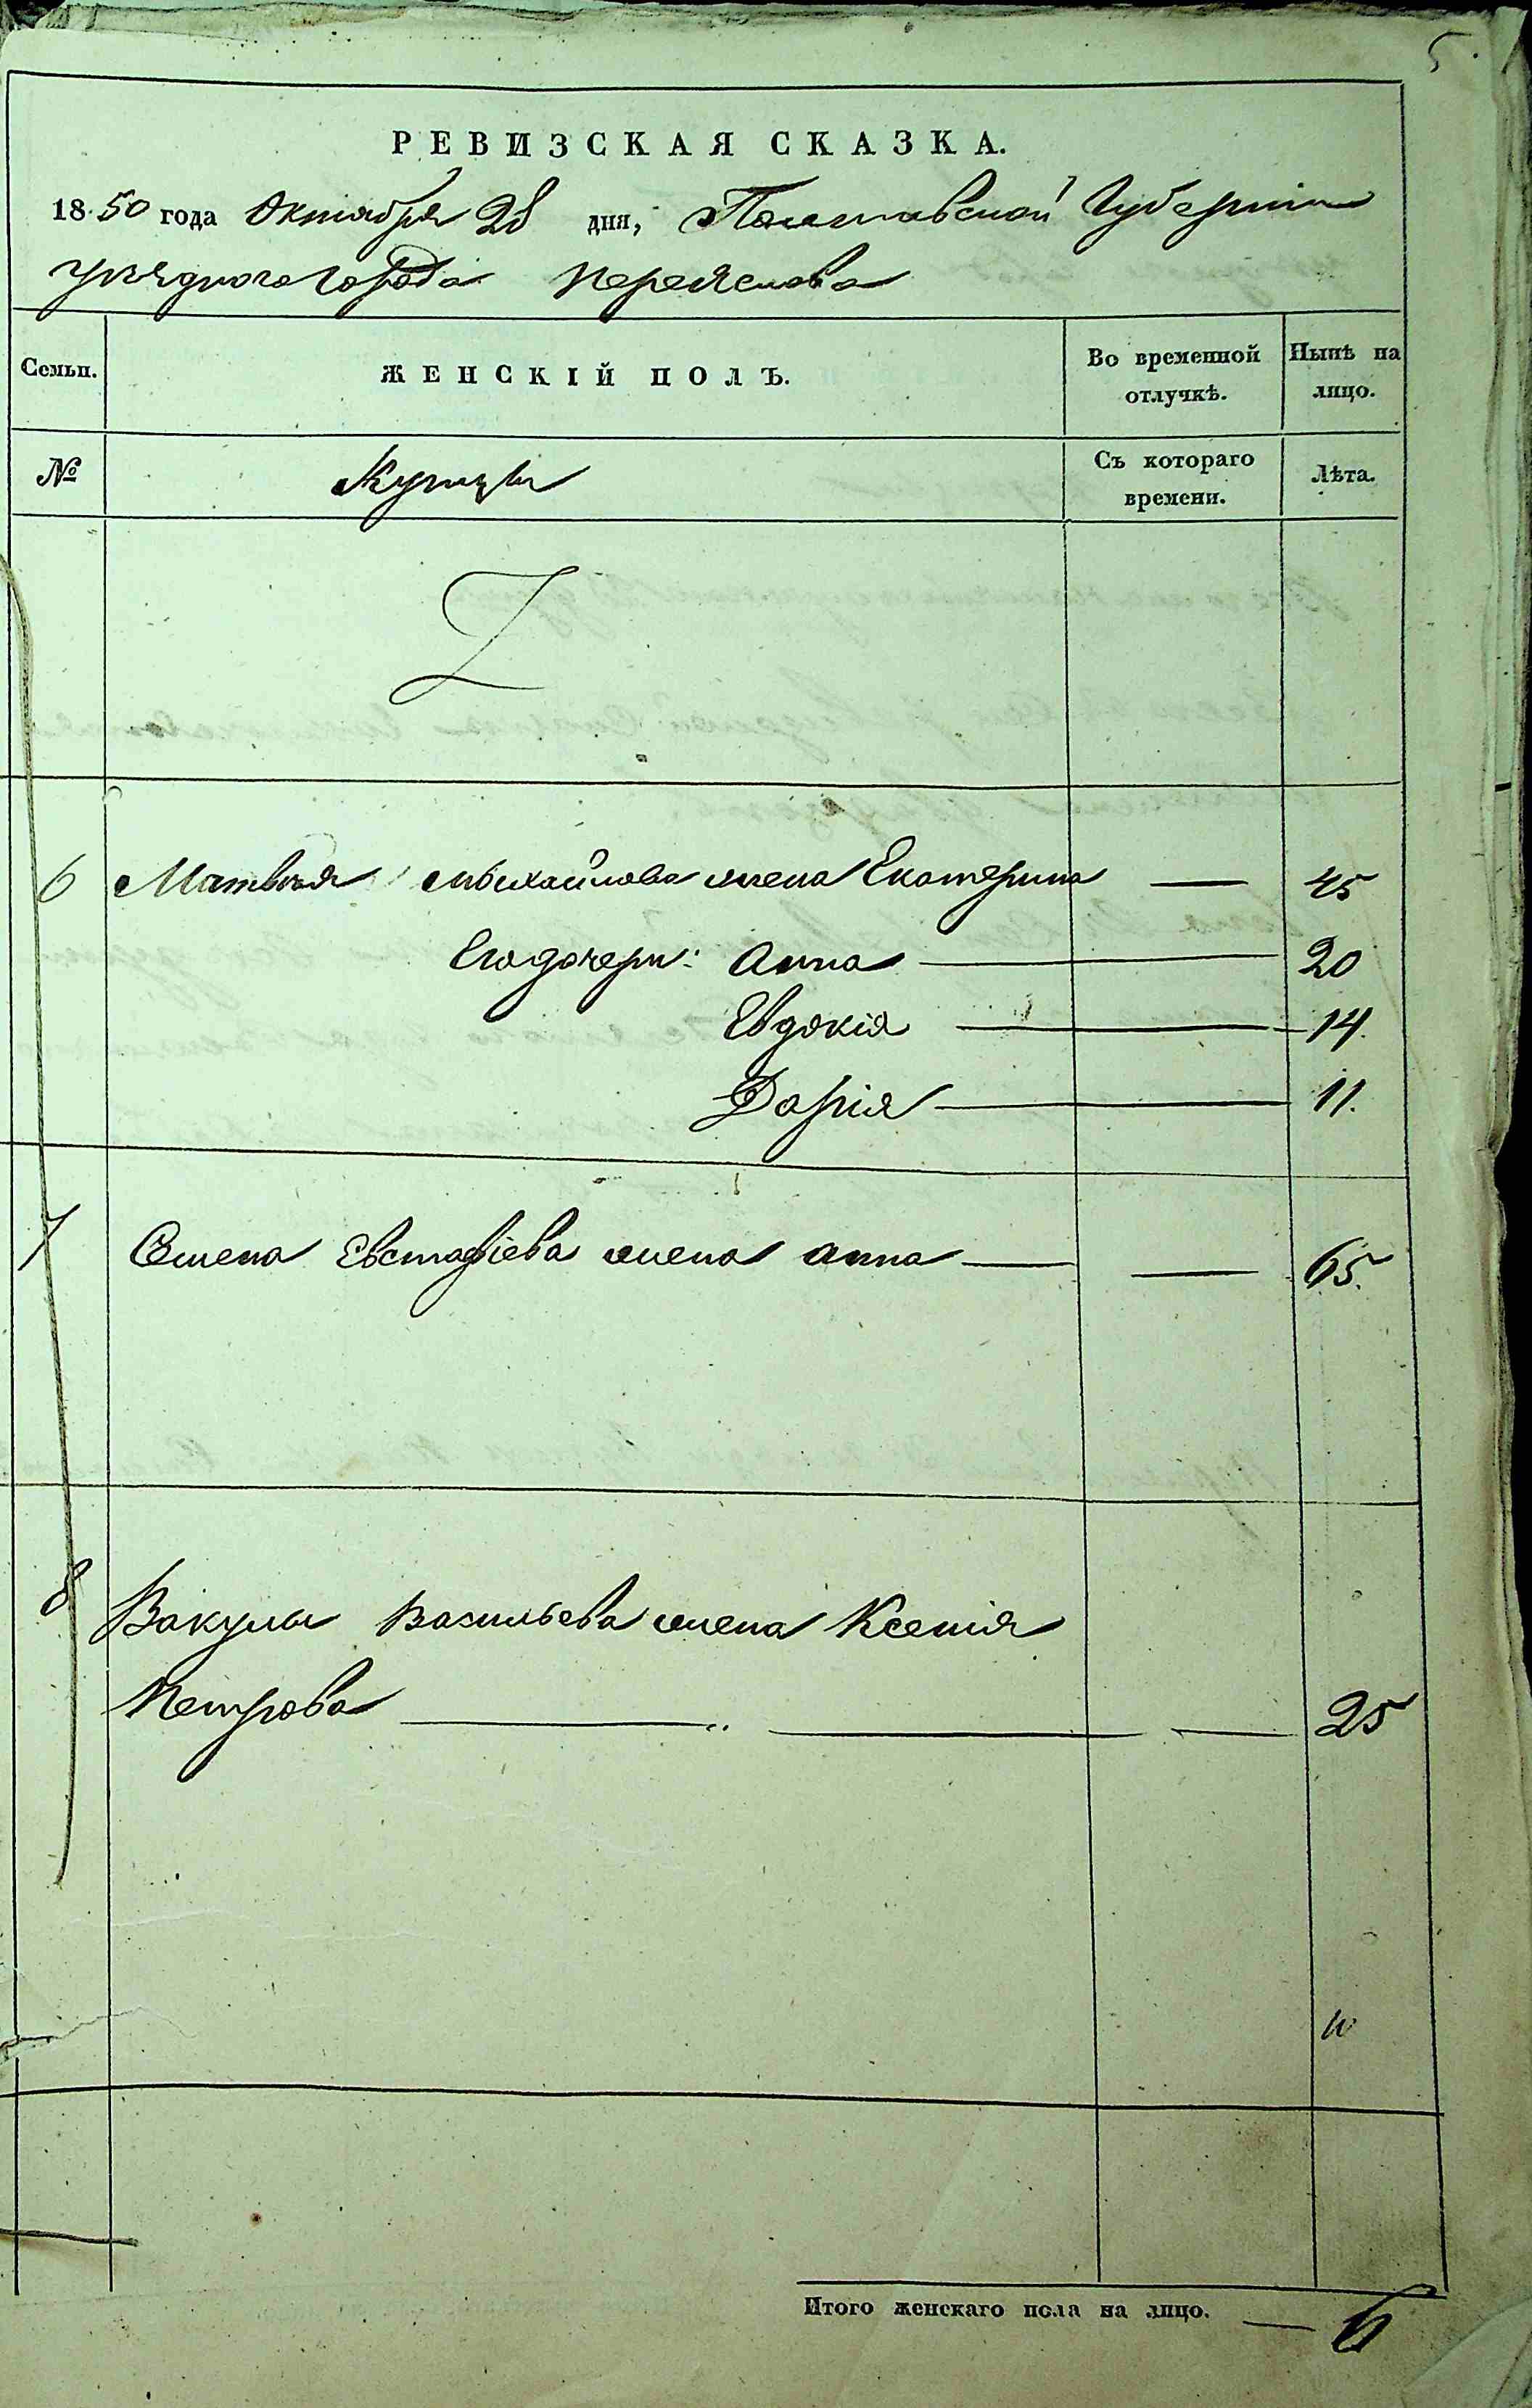 5.
РЕВИЗСКАЯ СКАЗКА.
1850 года Октября 28 дня, Полтавской Губернiи
уѣзднаго города Переяслова
Семьи. ЖЕНСКІЙ ПОЛЪ. Во временной отлучкѣ. Нынѣ на лицо.
№ Купцы Съ котораго времени. Лѣта.
6 Матвѣя Михайлова жена Екатерина — 45
Его дочери: Анна — 20
Евдокія — 14.
Дарія — 11.
7 Семена Евстафіева жена Анна — — 65.
8 Вакулы Васильева жена Ксенія
Петрова — „ — — 25
Итого женскаго пола на лицо. — 6